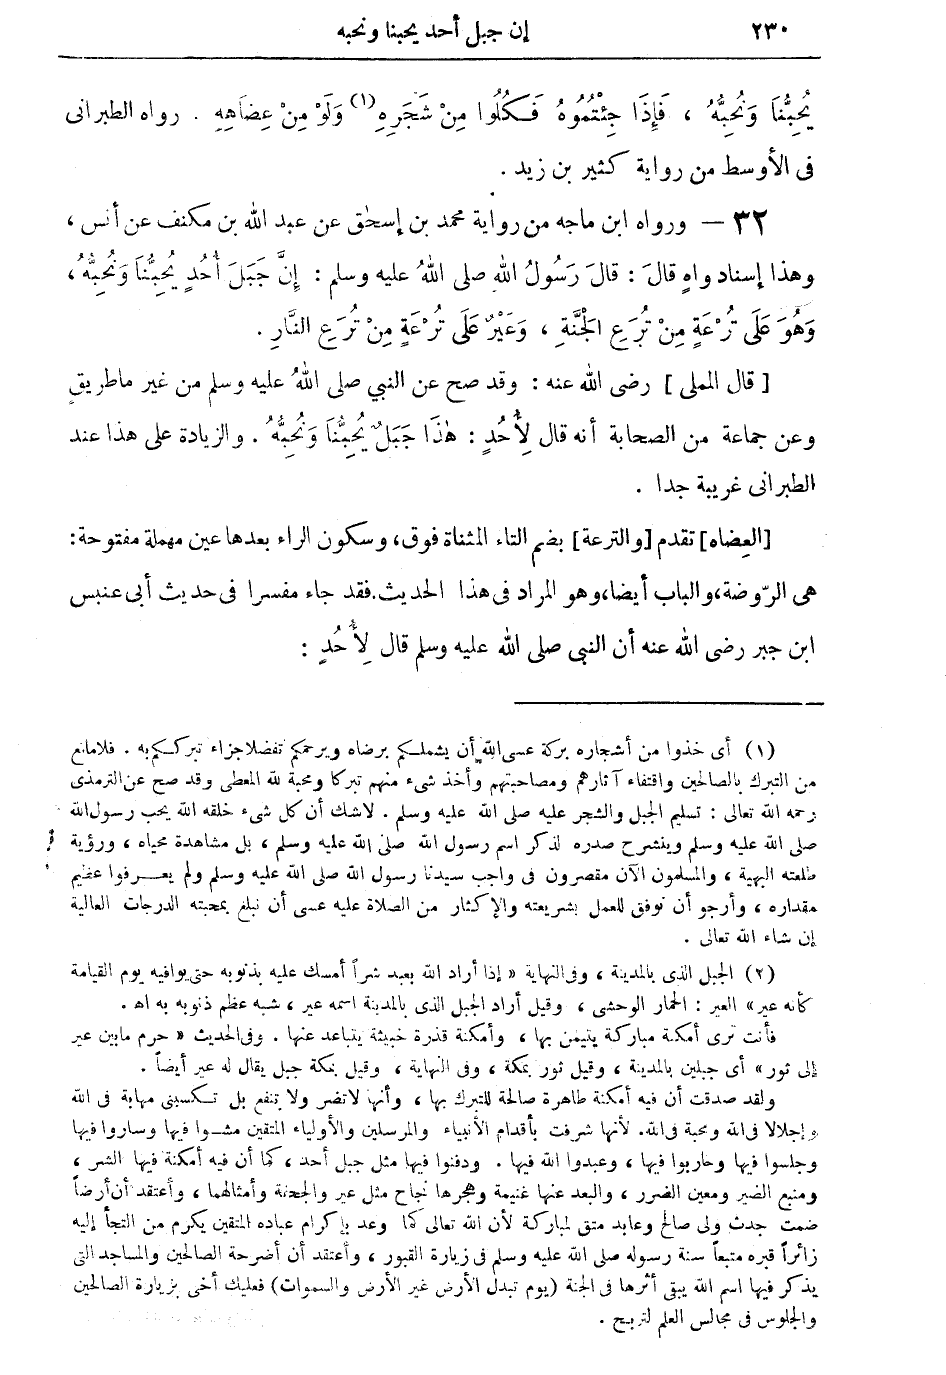 ٢٣٠
إن جبل أحد يحبنا ونحبه
يُحِبُّنَا وَنُحِبُّهُ ، فَإِذَا جِئْتُمُوهُ فَكُلُوا مِنْ شَجَرِهِ (١) وَلَوْ مِنْ عِضَاهِهِ . رواه الطبرانى
فى الأوسط من رواية كثير بن زيد .
٣٢ — ورواه ابن ماجه من رواية محمد بن إسحٰق عن عبد الله بن مكنف عن أنس ،
وهذا إسناد واهٍ قالَ : قالَ رَسُولُ اللهِ صلى اللهُ عليه وسلم : إِنَّ جَبَلَ أُحُدٍ يُحِبُّنَا وَنُحِبُّهُ ،
وَهُوَ عَلَى تُرْعَةٍ مِنْ تُرَعِ الْجَنَّةِ ، وَعَيْرٌ عَلَى تُرْعَةٍ مِنْ تُرَعِ النَّارِ .
[ قال المملى ] رضى الله عنه : وقد صح عن النبي صلى اللهُ عليه وسلم من غير ماطريقٍ
وعن جماعة من الصحابة أنه قال لِأُحُدٍ : هٰذَا جَبَلٌ يُحِبُّنَا وَنُحِبُّهُ . والزيادة على هذا عند
الطبرانى غريبة جدا .
[العِضاه] تقدم [والترعة] بضم التاء المثناة فوق، وسكون الراء بعدها عين مهملة مفتوحة:
هى الرّوضة، والباب أيضا، وهو المراد فى هذا الحديث. فقد جاء مفسرا فى حديث أبى عنبس
ابن جبر رضى الله عنه أن النبى صلى الله عليه وسلم قال لِأُحُدٍ :
(١) أى خذوا من أشجاره بركة عسى الله أن يشملكم برضاه ويرحمكم تفضلا جزاء تبرككم به . فلا مانع
من التبرك بالصالحين واقتفاء آثارهم ومصاحبتهم وأخذ شىء منهم تبركا ومحبة لله المعطى وقد صح عن الترمذى
رحمه الله تعالى : تسليم الجبل والشجر عليه صلى الله عليه وسلم . لاشك أن كل شىء خلقه الله يحب رسول الله
صلى الله عليه وسلم وينشرح صدره لذكر اسم رسول الله صلى الله عليه وسلم ، بل مشاهدة محياه ، ورؤية
طلعته البهية ، والمسلمون الآن مقصرون فى واجب سيدنا رسول الله صلى الله عليه وسلم ولم يعرفوا عظيم
مقداره ، وأرجو أن نوفق للعمل بشريعته والإكثار من الصلاة عليه عسى أن نبلغ بمحبته الدرجات العالية
إن شاء الله تعالى .
(٢) الجبل الذى بالمدينة ، وفى النهاية « إذا أراد الله بعبد شراً أمسك عليه بذنوبه حتى يوافيه يوم القيامة
كأنه عير» العير : الحمار الوحشى ، وقيل أراد الجبل الذى بالمدينة اسمه عير ، شبه عظم ذنوبه به اهـ .
فأنت ترى أمكنة مباركة يتيمن بها ، وأمكنة قذرة خبيثة يتباعد عنها . وفى الحديث « حرم مابين عير
إلى ثور» أى جبلين بالمدينة ، وقيل ثور بمكة ، وفى النهاية ، وقيل بمكة جبل يقال له عير أيضاً .
ولقد صدقت أن فيه أمكنة طاهرة صالحة للتبرك بها ، وأنها لاتضر ولا تنفع بل تكسبنى مهابة فى الله
وإجلالا فى الله ومحبة فى الله. لأنها شرفت بأقدام الأنبياء والمرسلين والأولياء المتقين مشوا فيها وساروا فيها
وجلسوا فيها وحاربوا فيها ، وعبدوا الله فيها . ودفنوا فيها مثل جبل أحد ، كما أن فيه أمكنة فيها الشر ،
ومنبع الضير ومعين الضرر ، والبعد عنها غنيمة وهجرها نجاح مثل عير والجحفة وأمثالهما ، وأعتقد أن أرضاً
ضمت جدث ولى صالح وعابد متق لمباركة لأن الله تعالى كما وعد بإكرام عباده المتقين يكرم من التجأ إليه
زائراً قبره متبعاً سنة رسوله صلى الله عليه وسلم فى زيارة القبور ، وأعتقد أن أضرحة الصالحين والمساجد التى
يذكر فيها اسم الله يبقى أثرها فى الجنة (يوم تبدل الأرض غير الأرض والسموات) فعليك أخى بزيارة الصالحين
والجلوس فى مجالس العلم لتربح .